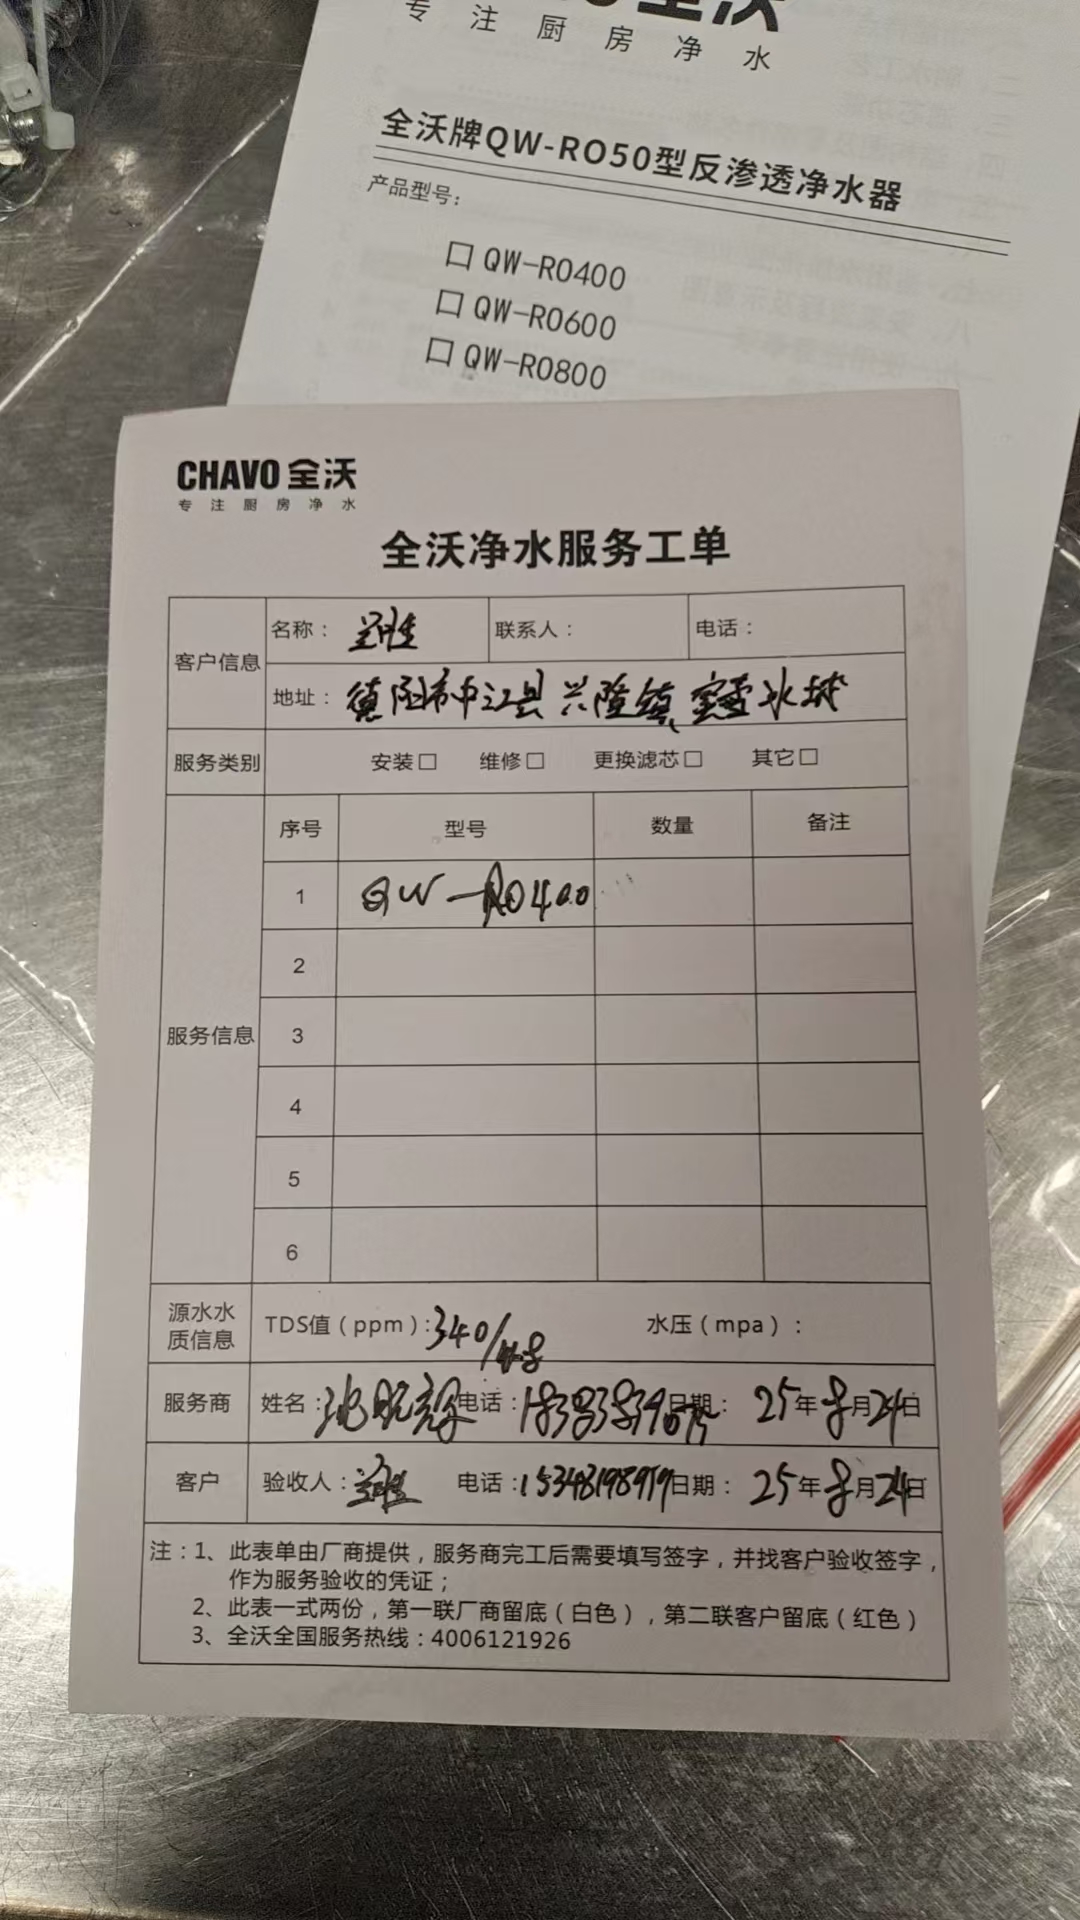 专注厨房净水
全沃牌QW-RO50型反渗透净水器
产品型号：
□ QW-RO400
□ QW-RO600
□ QW-RO800
CHAVO 全沃
专注厨房净水
全沃净水服务工单
客户信息
名称： 联系人： 电话：
地址： 德阳市中江县兴隆镇
服务类别 安装□ 维修□ 更换滤芯□ 其它□
服务信息
序号 型号 数量 备注
1 QW-RO400
2
3
4
5
6
源水水质信息 TDS值（ppm）：340/ 水压（mpa）：
服务商 姓名： 电话： 日期： 25年8月24日
客户 验收人： 电话：15348198979 日期： 25年8月24日
注：1、此表单由厂商提供，服务商完工后需要填写签字，并找客户验收签字，
作为服务验收的凭证；
2、此表一式两份，第一联厂商留底（白色），第二联客户留底（红色）
3、全沃全国服务热线：4006121926